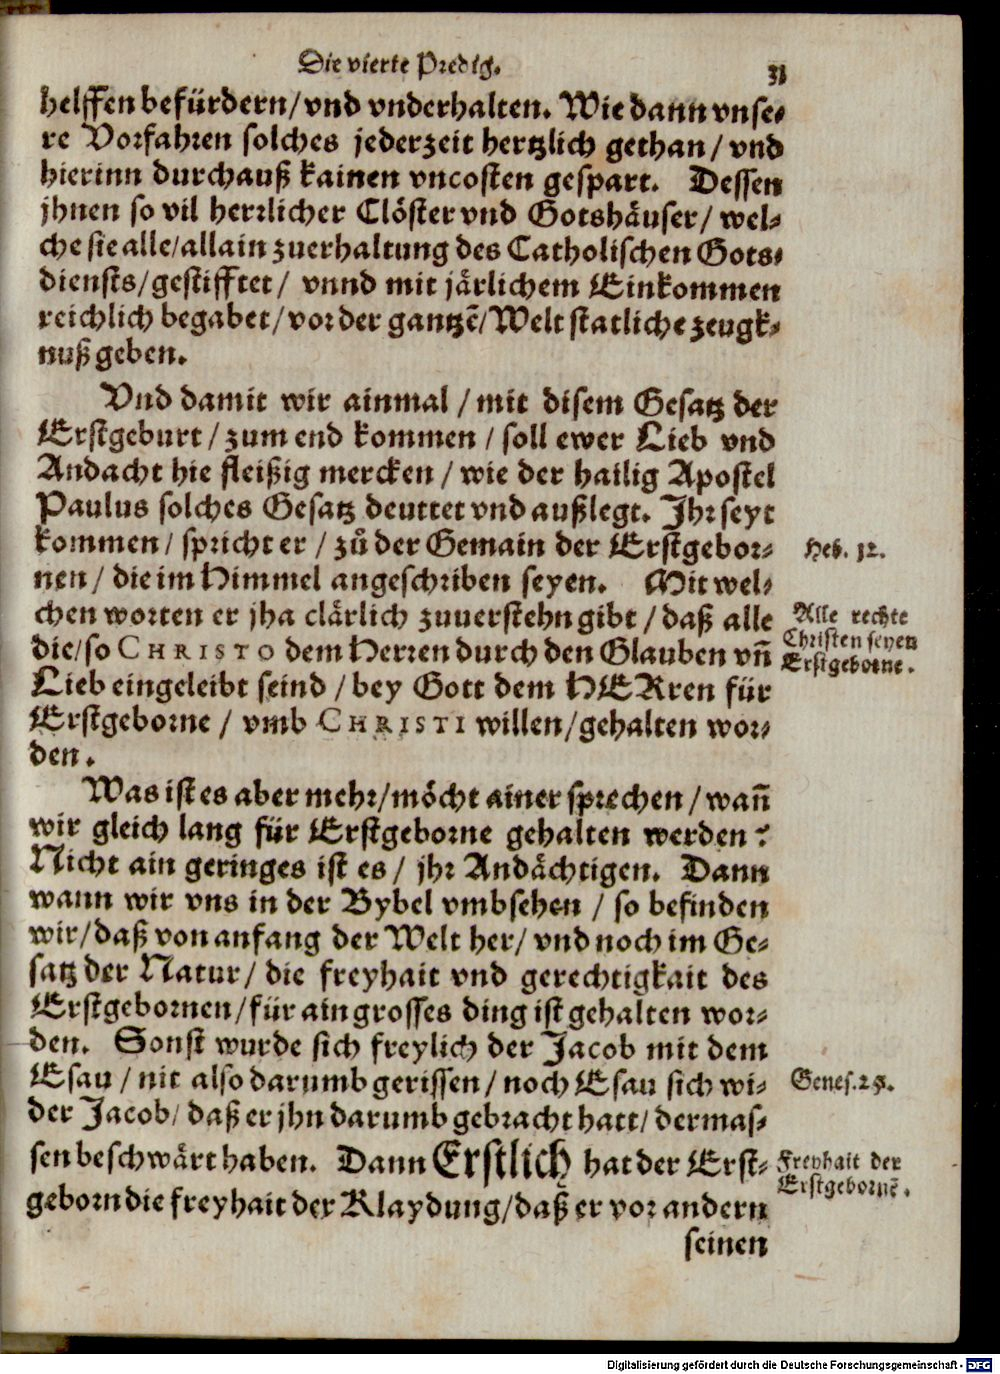 Die vierte Predig. 31
helffen befürdern/vnd vnderhalten. Wie dann vnse-
re Vorfahren solches jederzeit hertzlich gethan/ vnd
hierinn durchauß kainen vncosten gespart. Dessen
jhnen so vil herrlicher Clöster vnd Gotshäuser/ wel-
che sie alle/allain zuerhaltung des Catholischen Gots-
diensts/gestifftet/ vnnd mit järlichem Einkommen
reichlich begabet/vor der gantzē/Welt statliche zeugk-
nuß geben.
Vnd damit wir ainmal/mit disem Gesatz der
Erstgeburt/zum end kommen/soll ewer Lieb vnd
Andacht hie fleißig mercken/wie der hailig Apostel
Paulus solches Gesatz deuttet vnd außlegt. Jhr seyt
kommen/spricht er/zů der Gemain der Erstgebor-
Heb. 12.
nen/die im Himmel angeschriben seyen. Mit wel-
chen worten er jha clärlich zuuerstehn gibt/daß alle
die/so CHRISTO dem Herren durch den Glauben vñ
Alle rechte
Christen seyen
Erstgeborne.
Lieb eingeleibt seind/bey Gott dem HERren für
Erstgeborne/ vmb CHRISTI willen/gehalten wor-
den.
Was ist es aber mehr/möcht ainer sprechen/wañ
wir gleich lang für Erstgeborne gehalten werden?
Nicht ain geringes ist es/ jhr Andächtigen. Dann
wann wir vns in der Bybel vmbsehen/so befinden
wir/daß von anfang der Welt her/vnd noch im Ge-
satz der Natur/ die freyhait vnd gerechtigkait des
Erstgebornen/für ain grosses ding ist gehalten wor-
den. Sonst wurde sich freylich der Jacob mit dem
Esau/nit also darumb gerissen/noch Esau sich wi-
Genes. 25.
der Jacob/daß er jhn darumb gebracht hatt/dermas-
sen beschwärt haben. Dann Erstlich hat der Erst-
Freyhait der
Erstgebornē.
geborn die freyhait der Klaydung/daß er vor andern
seinen
Digitalisierung gefördert durch die Deutsche Forschungsgemeinschaft - DFG